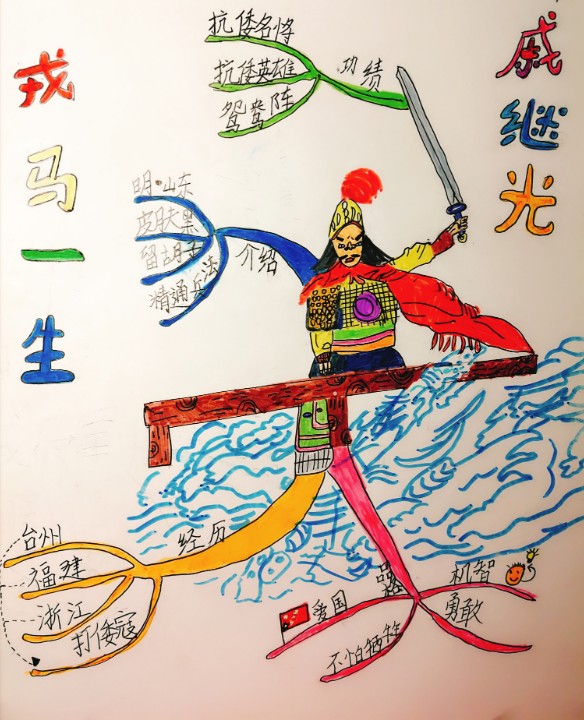 戎马一生
戚继光
抗倭名将
抗倭英雄
鸳鸯阵
功绩
明·山东
皮肤黑
留胡子
精通兵法
介绍
台州
福建
浙江
打倭寇
经历
爱国
不怕牺牲
机智
勇敢